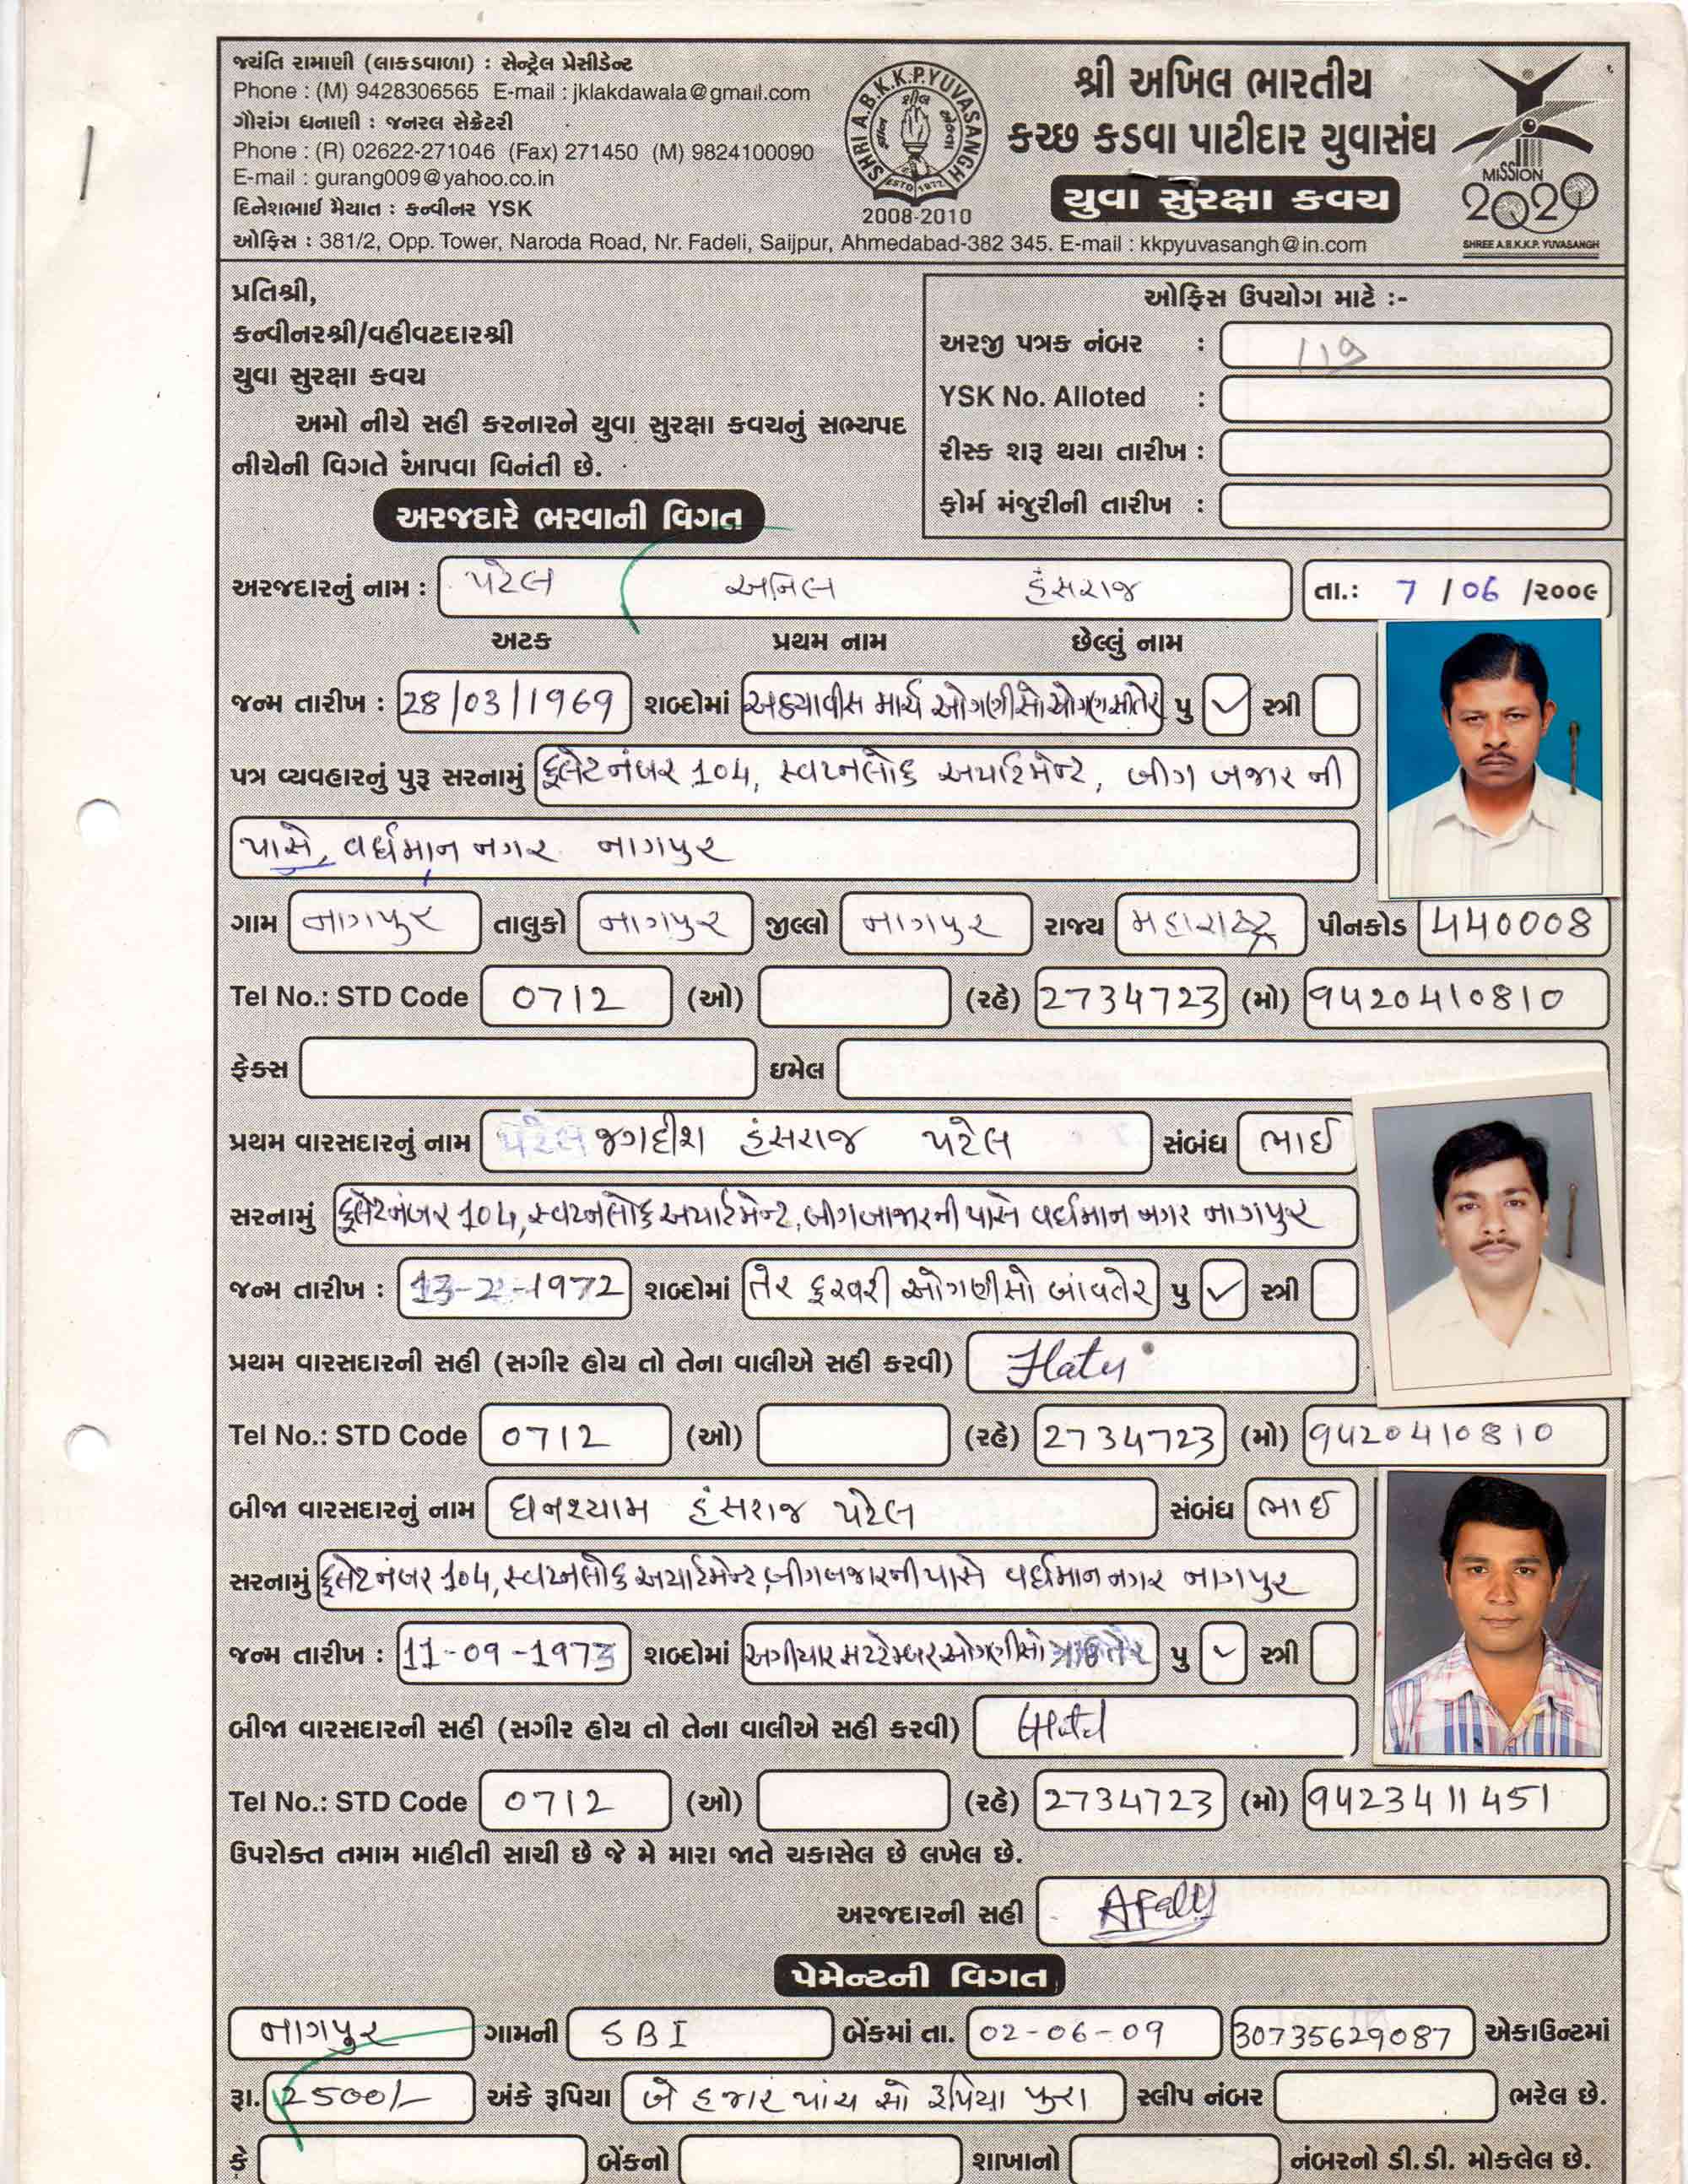 જયંતિ રામાણી (લાકડવાળા) : સેન્ટ્રેલ પ્રેસીડેન્ટ
Phone : (M) 9428306565 E-mail : jklakdawala@gmail.com
ગૌરાંગ ધનાણી : જનરલ સેક્રેટરી
Phone : (R) 02622-271046 (Fax) 271450 (M) 9824100090
E-mail : gurang009@yahoo.co.in
દિનેશભાઈ મૈયાત : કન્વીનર YSK
SHRI A.B.K.K.P. YUVASANGH
ESTD 1977
2008-2010
શ્રી અખિલ ભારતીય
કચ્છ કડવા પાટીદાર યુવાસંઘ
યુવા સુરક્ષા કવચ
MISSION
2020
SHREE A.B.K.K.P. YUVASANGH
ઓફિસ : 381/2, Opp. Tower, Naroda Road, Nr. Fadeli, Saijpur, Ahmedabad-382 345. E-mail : kkpyuvasangh@in.com
પ્રતિશ્રી,
કન્વીનરશ્રી/વહીવટદારશ્રી
યુવા સુરક્ષા કવચ
અમો નીચે સહી કરનારને યુવા સુરક્ષા કવચનું સભ્યપદ
નીચેની વિગતે આપવા વિનંતી છે.
ઓફિસ ઉપયોગ માટે :-
અરજી પત્રક નંબર :
YSK No. Alloted :
રીસ્ક શરૂ થયા તારીખ :
ફોર્મ મંજુરીની તારીખ :
અરજદારે ભરવાની વિગત
અરજદારનું નામ : પટેલ અનિલ હંસરાજ તા.: 7 / 06 /૨૦૦૯
અટક પ્રથમ નામ છેલ્લું નામ
જન્મ તારીખ : 28/03/1969 શબ્દોમાં અઠયાવીસ માર્ચ ઓગણીસો ઓગણસીતેર પુ ✓ સ્ત્રી
પત્ર વ્યવહારનું પુરૂ સરનામું ફ્લેટ નંબર 104, સ્વપ્નલોક અપાર્ટમેન્ટ, બીગ બજાર ની
પાસે, વર્ધમાન નગર નાગપુર
ગામ નાગપુર તાલુકો નાગપુર જીલ્લો નાગપુર રાજ્ય મહારાષ્ટ્ર પીનકોડ 440008
Tel No.: STD Code 0712 (ઓ) (રહે) 2734723 (મો) 9420410810
ફેક્સ ઇમેલ
પ્રથમ વારસદારનું નામ જગદીશ હંસરાજ પટેલ સંબંધ ભાઈ
સરનામું ફ્લેટ નંબર 104, સ્વપ્નલોક અપાર્ટમેન્ટ, બીગ બાજારની પાસે વર્ધમાન નગર નાગપુર
જન્મ તારીખ : 13-2-1972 શબ્દોમાં તેર ફરવરી ઓગણીસો બાંવતેર પુ ✓ સ્ત્રી
પ્રથમ વારસદારની સહી (સગીર હોય તો તેના વાલીએ સહી કરવી)
Tel No.: STD Code 0712 (ઓ) (રહે) 2734723 (મો) 9420410810
બીજા વારસદારનું નામ ઘનશ્યામ હંસરાજ પટેલ સંબંધ ભાઈ
સરનામું ફ્લેટ નંબર 104, સ્વપ્નલોક અપાર્ટમેન્ટ, બીગ બજારની પાસે વર્ધમાન નગર નાગપુર
જન્મ તારીખ : 11-09-1973 શબ્દોમાં અગીયાર સપ્ટેમ્બર ઓગણીસો પુ ✓ સ્ત્રી
બીજા વારસદારની સહી (સગીર હોય તો તેના વાલીએ સહી કરવી)
Tel No.: STD Code 0712 (ઓ) (રહે) 2734723 (મો) 9423411451
ઉપરોક્ત તમામ માહીતી સાચી છે જે મે મારા જાતે ચકાસેલ છે લખેલ છે.
અરજદારની સહી
પેમેન્ટની વિગત
નાગપુર ગામની SBI બેંકમાં તા. 02-06-09 30735629087 એકાઉન્ટમાં
રૂા. 2500/- અંકે રૂપિયા બે હજાર પાંચ સો રૂપિયા પુરા સ્લીપ નંબર ભરેલ છે.
કે બેંકનો શાખાનો નંબરનો ડી.ડી. મોકલેલ છે.